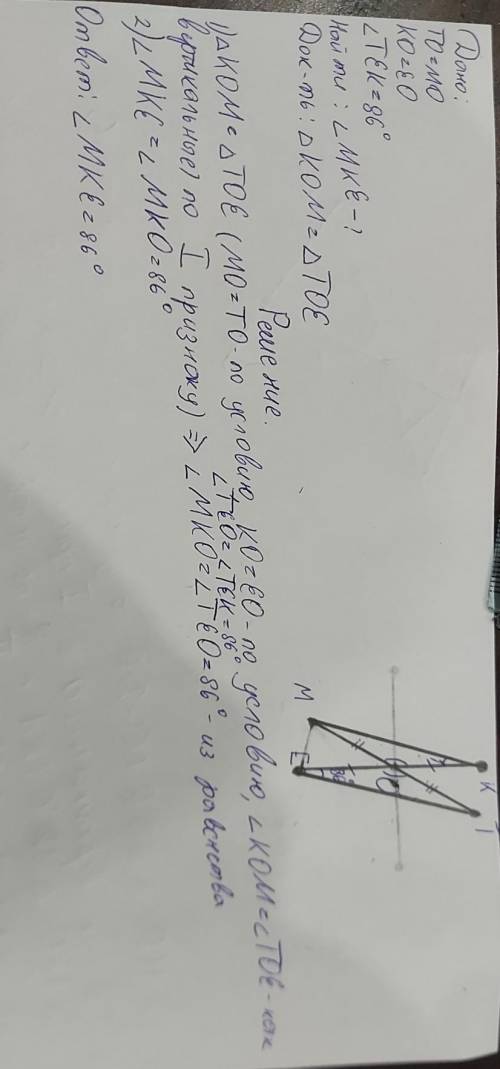 Дано:
TO=MO
KO=EO
∠TEK=86°
Найти: ∠MKE-?
Док-ть: △KOM=△TOE
Решение.
1) △KOM=△TOE (MO=TO-по условию, KO=EO-по условию, ∠KOM=∠TOE-как
вертикальные) по I признаку) ⇒ ∠MKO=∠TEO=86°-из равенства
∠TEO=∠TEK=86°
2) ∠MKE=∠MKO=86°
Ответ: ∠MKE=86°
M
E
K
T
O
86°
?